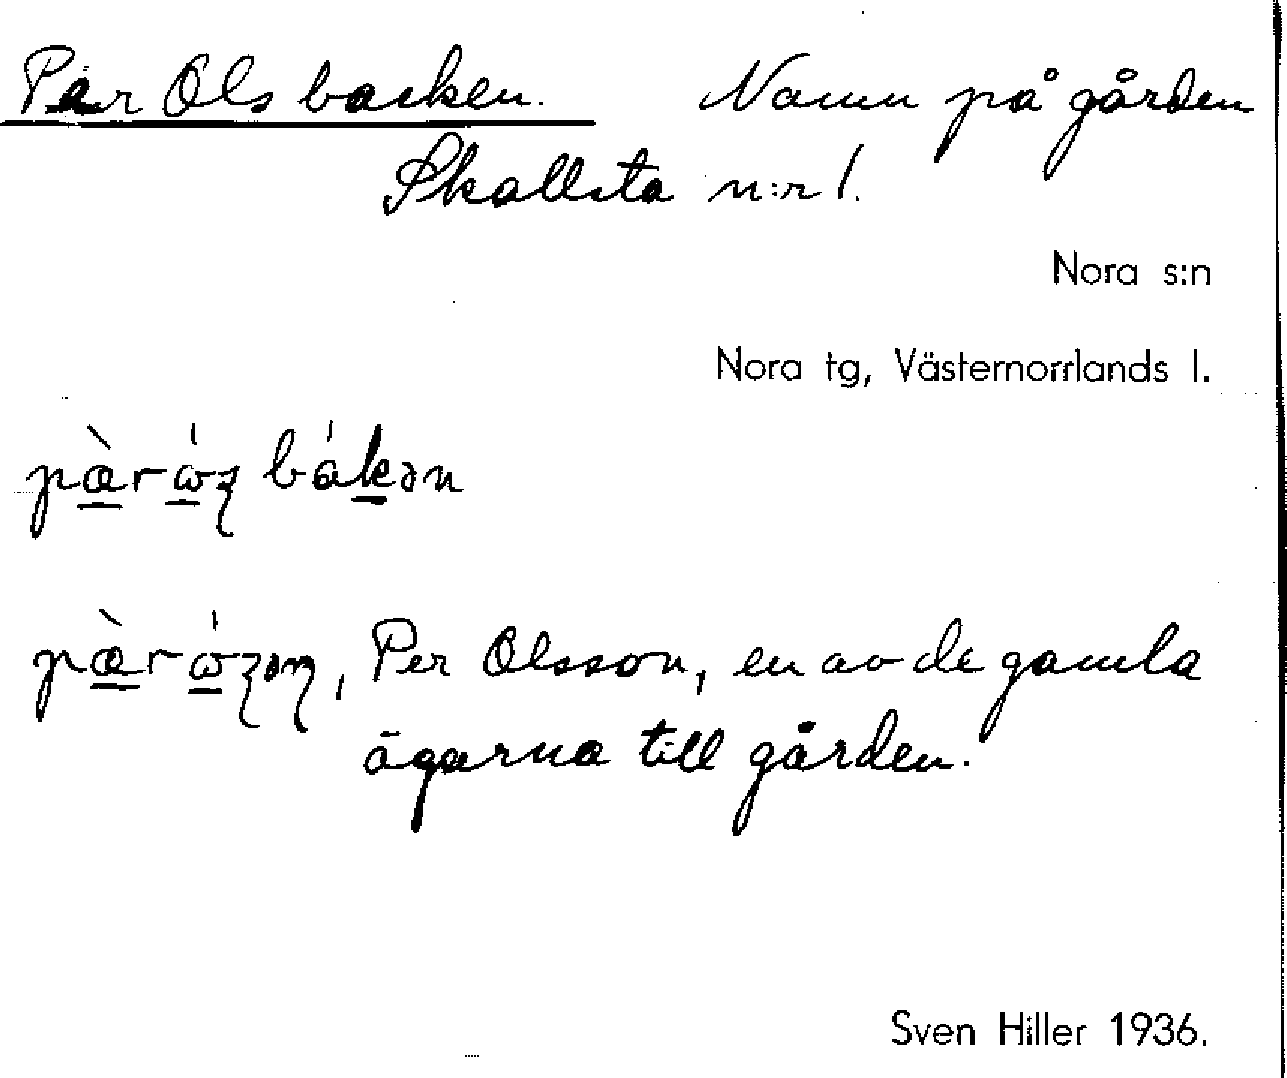 Per Ols backen. Namn på gården
Skallsta n:r 1.
Nora s:n
Nora tg, Västernorrlands l.
Per Olsson, en av de gamla
ägarna till gården.
Sven Hiller 1936.